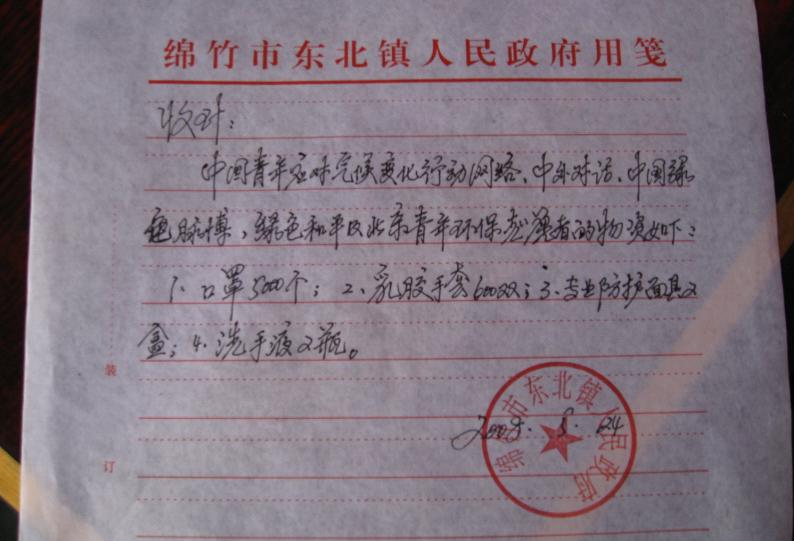 绵竹市东北镇人民政府用笺
收到：
中国青年应对气候变化行动网络、中外对话、中国绿
色脉搏，绿色和平及北京青年环保志愿者的物资如下：
1、口罩5000个；2、乳胶手套600双；3、专业防护面具2
盒；4、洗手液2瓶。
装
绵竹市东北镇人民政府
订